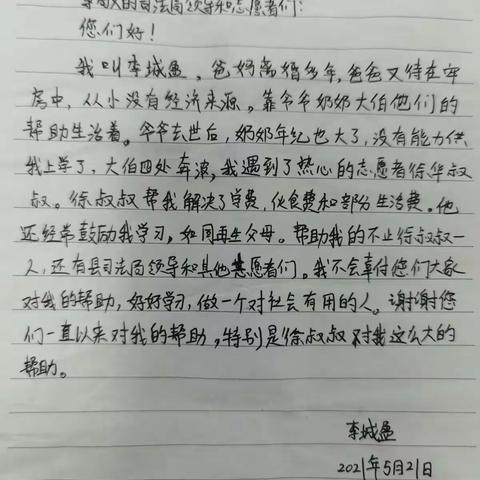 尊敬的司法局领导和志愿者们：
您们好！
我叫李城孟，爸妈离婚多年，爸爸又待在牢
房中，从小没有经济来源。靠爷爷奶奶大伯他们的
帮助生活着。爷爷去世后，奶奶年纪也大了，没有能力供
我上学了，大伯四处奔波，我遇到了热心的志愿者徐华叔
叔。徐叔叔帮我解决了学费，伙食费和部分生活费。他
还经常鼓励我学习，如同再生父母。帮助我的不止徐叔叔一
人，还有县司法局领导和其他志愿者们。我不会辜付您们大家
对我的帮助，好好学习，做一个对社会有用的人。谢谢您
们一直以来对我的帮助，特别是徐叔叔对我这么大的
帮助。
李城孟
2021年5月21日